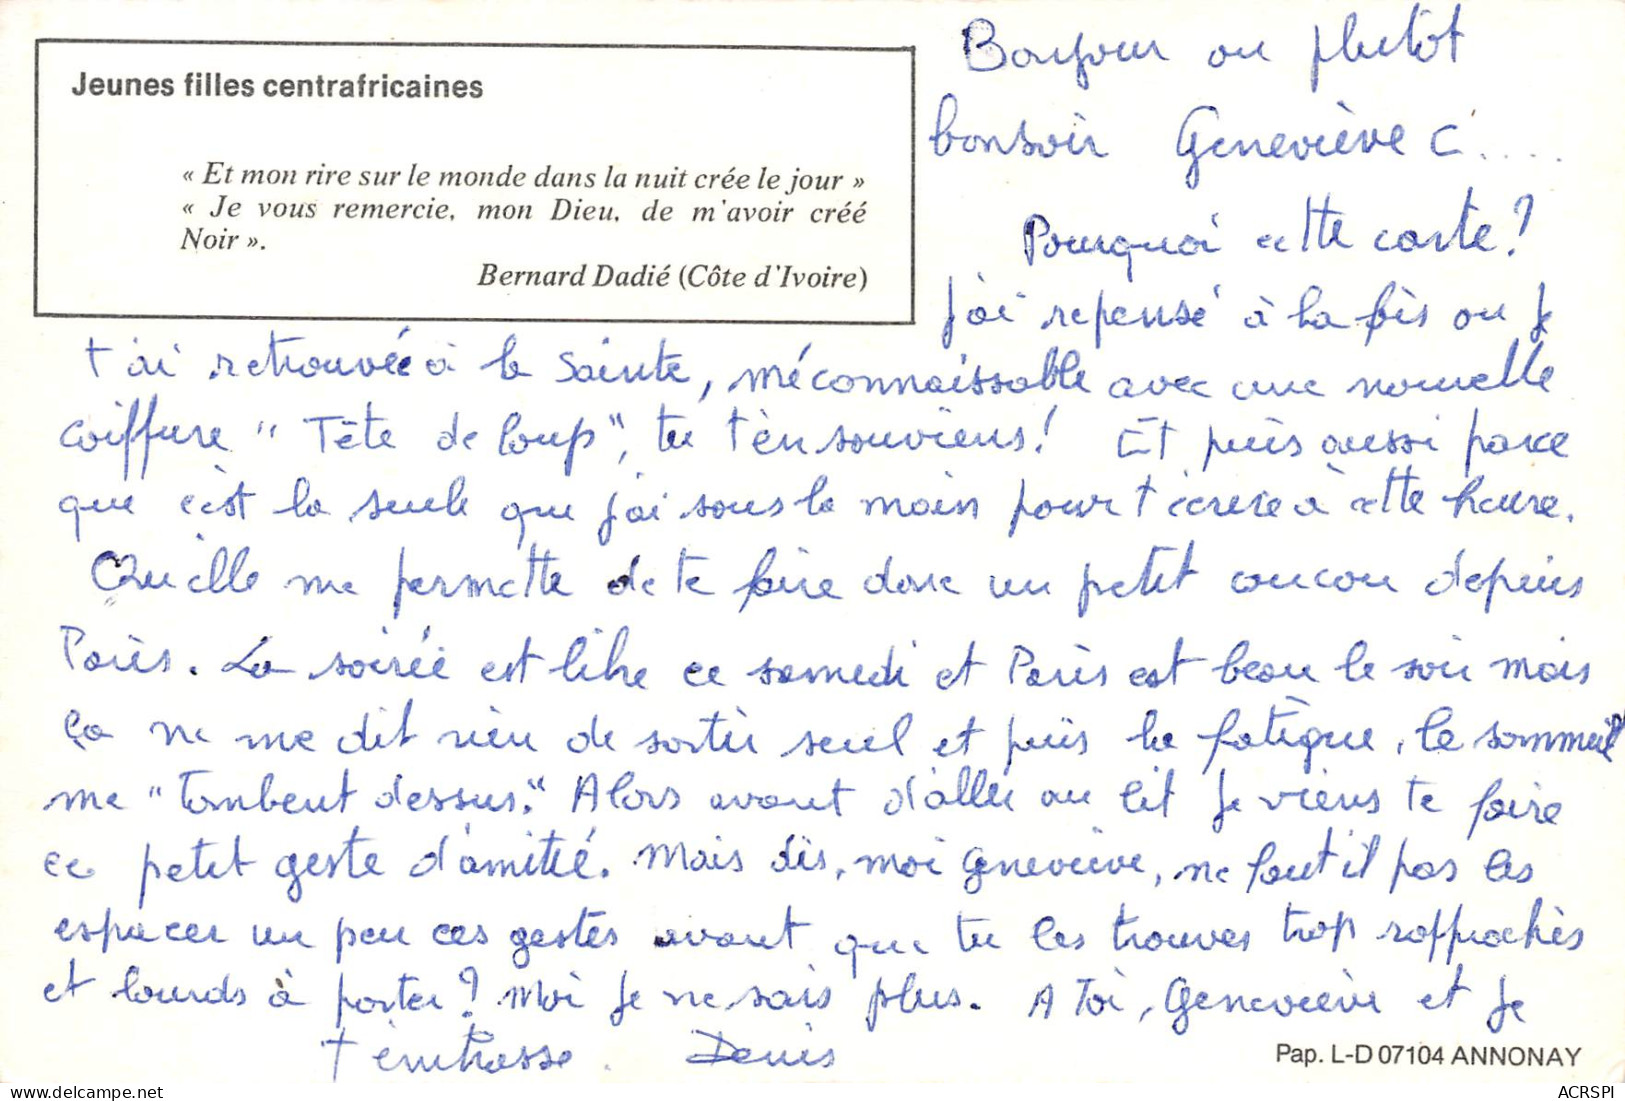 Jeunes filles centrafricaines
« Et mon rire sur le monde dans la nuit crée le jour »
« Je vous remercie, mon Dieu, de m'avoir créé
Noir ».
Bernard Dadié (Côte d'Ivoire)
Bonjour ou plutôt
bonsoir Geneviève C.....
Pourquoi cette carte?
J'ai repensé à la fois ou Je
t'ai retrouvée à la Sainte, méconnaissable avec une nouvelle
coiffure "Tête de loup", tu t'en souviens! Et puis aussi parce
que c'est la seule que j'ai sous la main pour t'écrire à cette heure.
Qu'elle me permette de te faire donc un petit coucou depuis
Paris. La soirée est libre ce samedi et Paris est beau le soir mais
ça ne me dit rien de sortir seul et puis la fatigue, le sommeil
me "tombent dessus". Alors avant d'aller au lit Je viens te faire
ce petit geste d'amitié. Mais dis, moi Geneviève, ne faut il pas les
espacer un peu ces gestes avant que tu les trouves trop rapprochés
et lourds à porter? Moi Je ne sais plus. A Toi, Geneviève et Je
t'embrasse. Denis
Pap. L-D 07104 ANNONAY
ACRSPI